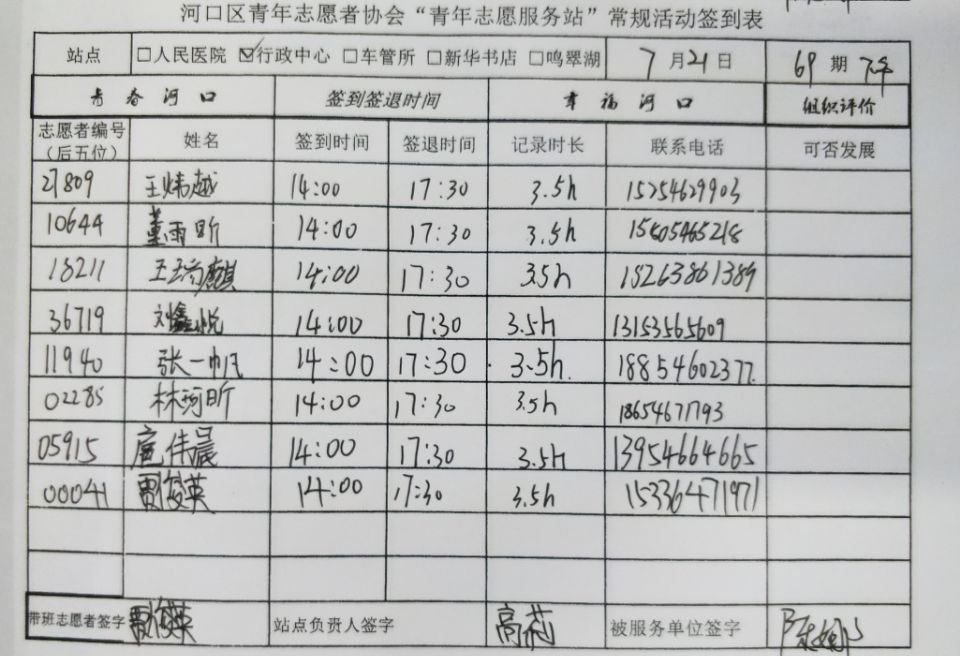 河口区青年志愿者协会“青年志愿服务站”常规活动签到表
站点 □人民医院 ☑行政中心 □车管所 □新华书店 □鸣翠湖 7月21日 69期 下午
青春河口 签到签退时间 幸福河口 组织评价
志愿者编号（后五位） 姓名 签到时间 签退时间 记录时长 联系电话 可否发展
27809 王炜越 14:00 17:30 3.5h 15254629903
10644 董雨昕 14:00 17:30 3.5h 15805465218
18211 王瑞麒 14:00 17:30 3.5h 15263861389
36719 刘鑫悦 14:00 17:30 3.5h 13153565609
11940 张一帆 14:00 17:30 3.5h 18854602377
02285 林珂昕 14:00 17:30 3.5h 18654671793
05915 扈伟晨 14:00 17:30 3.5h 13954664665
00041 贾俊英 14:00 17:30 3.5h 15336471971
带班志愿者签字 贾俊英 站点负责人签字 高莉 被服务单位签字